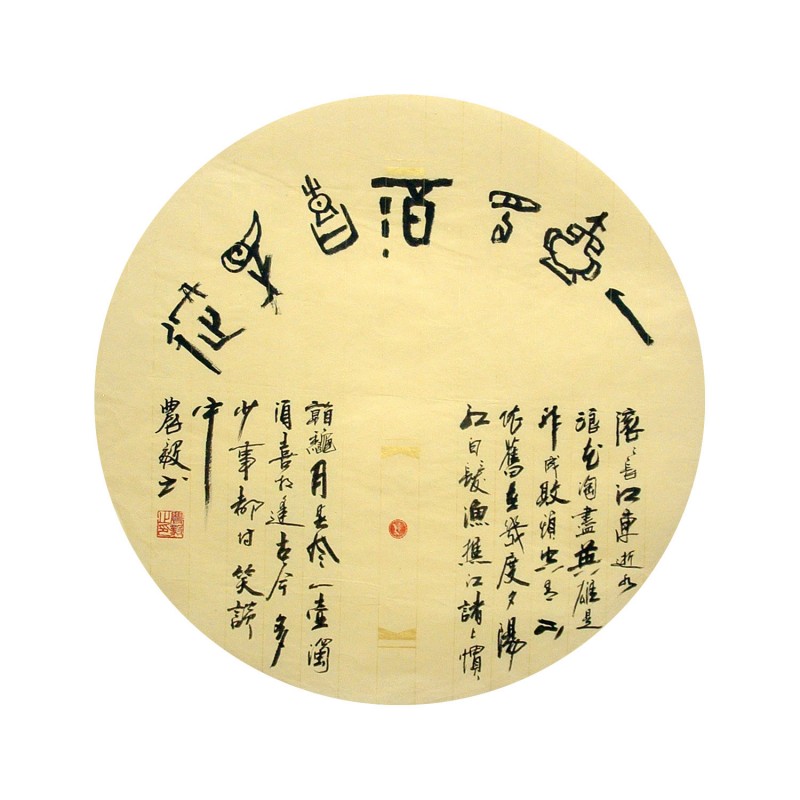 一壺濁酒喜相逢
滚〻長江東逝水
浪花淘盡英雄是
非成敗頭空青山
依舊在幾度夕陽
紅白髮漁樵江渚上慣
看龝月春風一壺濁
酒喜相逢古今多
少事都付笑談
中
農毅书